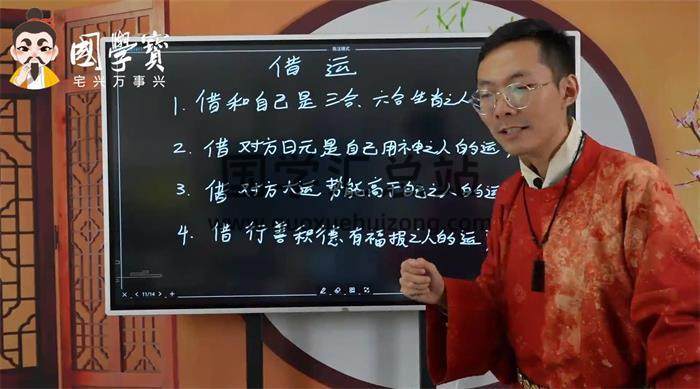 國學寶
宅兴万事兴
批注模式
借运
1. 借和自己是三合、六合生肖之人
2. 借对方日元是自己用神之人的运
3. 借对方大运势能高于自己之人的运
4. 借行善积德有福报之人的运
国学汇总站
www.guoxuehuizong.com
11/14